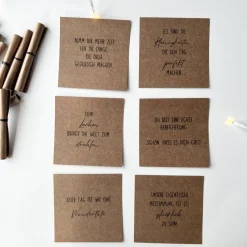 NIMM DIR MEHR ZEIT
FÜR DIE DINGE
DIE DICH
GLÜCKLICH MACHEN
ES SIND DIE
Kleinigkeiten
DIE DEN TAG
perfekt
MACHEN
DEIN
Lachen
BRINGT DIE WELT ZUM
strahlen
DU BIST EINE ECHTE
BEREICHERUNG
SCHÖN, DASS ES DICH GIBT!
JEDER TAG IST WIE EINE
Wundertüte
UNSERE EIGENTLICHE
BESTIMMUNG IST ES
glücklich
ZU SEIN